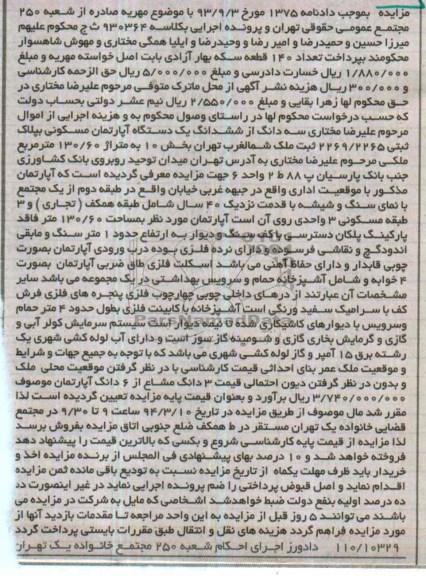 مزایده بموجب دادنامه ۱۳۷۵ مورخ ۹۳/۹/۳ با موضوع مهریه صادره از شعبه ۲۵۰
مجتمع عمومی حقوقی تهران و پرونده اجرایی بکلاسه ۹۳۰۳۶۴ ث ج محکوم علیهم
میرزا حسین و حمیدرضا و امیر رضا و وحیدرضا و ایلیا همگی مختاری و مهوش شاهسوار
محکومند بپرداخت تعداد ۱۴۰ قطعه سکه بهار آزادی بابت اصل خواسته مهریه و مبلغ
۱/۸۸۰/۰۰۰ ریال خسارت دادرسی و مبلغ ۵/۰۰۰/۰۰۰ ریال حق الزحمه کارشناسی
و ۳۰۰/۰۰۰ ریال هزینه نشر آگهی از محل ماترک متوفی مرحوم علیرضا مختاری در
حق محکوم لها زهرا بقایی و مبلغ ۲/۵۵۰/۰۰۰ ریال نیم عشر دولتی بحساب دولت
که حسب درخواست محکوم لها در راستای وصول محکوم به و هزینه اجرایی از اموال
مرحوم علیرضا مختاری سه دانگ از ششدانگ یک دستگاه آپارتمان مسکونی بپلاک
ثبتی ۲۲۶۹/۲۲۶۵ ثبت ملک شمالغرب تهران بخش ۱۰ به متراژ ۱۳۰/۶۰ مترمربع
ملکی مرحوم علیرضا مختاری به آدرس تهران میدان توحید روبروی بانک کشاورزی
جنب بانک پارسیان پ ۸۸ ط ۲ واحد ۶ جهت مزایده معرفی گردیده است که آپارتمان
مذکور با موقعیت اداری واقع در جبهه غربی خیابان واقع در طبقه دوم از یک مجتمع
با نمای سنگ و شیشه با قدمت نزدیک ۴۰ سال شامل طبقه همکف ( تجاری ) و ۳
طبقه مسکونی ۳ واحدی روی آن است آپارتمان مورد نظر بمساحت ۱۳۰/۶۰ متر فاقد
پارکینگ پلکان دسترسی با کف سنگ و دیوار به ارتفاع حدود ۱ متر سنگ و مابقی
اندودگچ و نقاشی فرسوده و دارای نرده فلزی بوده درب ورودی آپارتمان بصورت
چوبی قابدار و دارای حفاظ آهنی می باشد اسکلت فلزی طاق ضربی آپارتمان بصورت
۴ خوابه و شامل آشپزخانه حمام و سرویس بهداشتی در یک مجموعه می باشد سایر
مشخصات آن عبارتند از درهای داخلی چوبی چهارچوب فلزی پنجره های فلزی فرش
کف با سرامیک سفید ورنگی است آشپزخانه با کابینت فلزی بطول حدود ۴ متر حمام
وسرویس با دیوارهای کاشیکاری شده تا نیمه دیوار است سیستم سرمایش کولر آبی و
گازی و گرمایش بخاری گازی و شومینه گاز سوز است و دارای آب لوله کشی شهری یک
رشته برق ۱۵ آمپر و گاز لوله کشی شهری می باشد که با توجه به جمیع جهات و شرایط
و موقعیت ملک عمر بنای احداثی قیمت کارشناسی با در نظر گرفتن موقعیت محلی ملک
و بدون در نظر گرفتن دیون احتمالی قیمت ۳ دانگ مشاع از ۶ دانگ آپارتمان موصوف
۳/۷۴۰/۰۰۰/۰۰۰ ریال برآورد و بعنوان قیمت پایه مزایده تعیین گردیده است لذا
مقرر شد مال موصوف از طریق مزایده در تاریخ ۹۴/۳/۱۰ ساعت ۹ تا ۹/۳۰ در مجتمع
قضایی خانواده یک تهران مستقر در ط همکف ضلع جنوبی اتاق مزایده بفروش برسد
لذا مزایده از قیمت پایه کارشناسی شروع و بکسی که بالاترین قیمت را پیشنهاد دهد
فروخته خواهد شد و ۱۰ درصد بهای پیشنهادی فی المجلس از برنده مزایده اخذ و
خریدار باید ظرف مهلت یکماه از تاریخ مزایده نسبت به تودیع باقی مانده ثمن مزایده
اقدام نماید و اصل قبوض پرداختی را ضم پرونده اجرایی نماید در غیر اینصورت ده
ده درصد اولیه بنفع دولت ضبط خواهدشد اشخاصی که مایل به شرکت در مزایده می
باشند می توانند ۵ روز قبل از مزایده به این واحد مراجعه تا مقدمات بازدید آنها از
مورد مزایده فراهم گردد هزینه های نقل و انتقال طبق مقررات بایستی پرداخت گردد
۱۱۰/۱۰۳۲۹ دادورز اجرای احکام شعبه ۲۵۰ مجتمع خانواده یک تهران